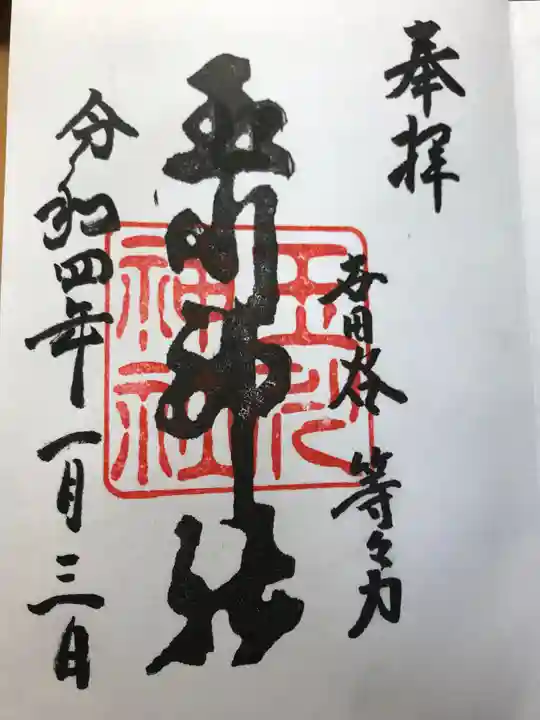 奉拝
世田谷 等々力
玉川神社
玉川
神社
令和四年一月三日